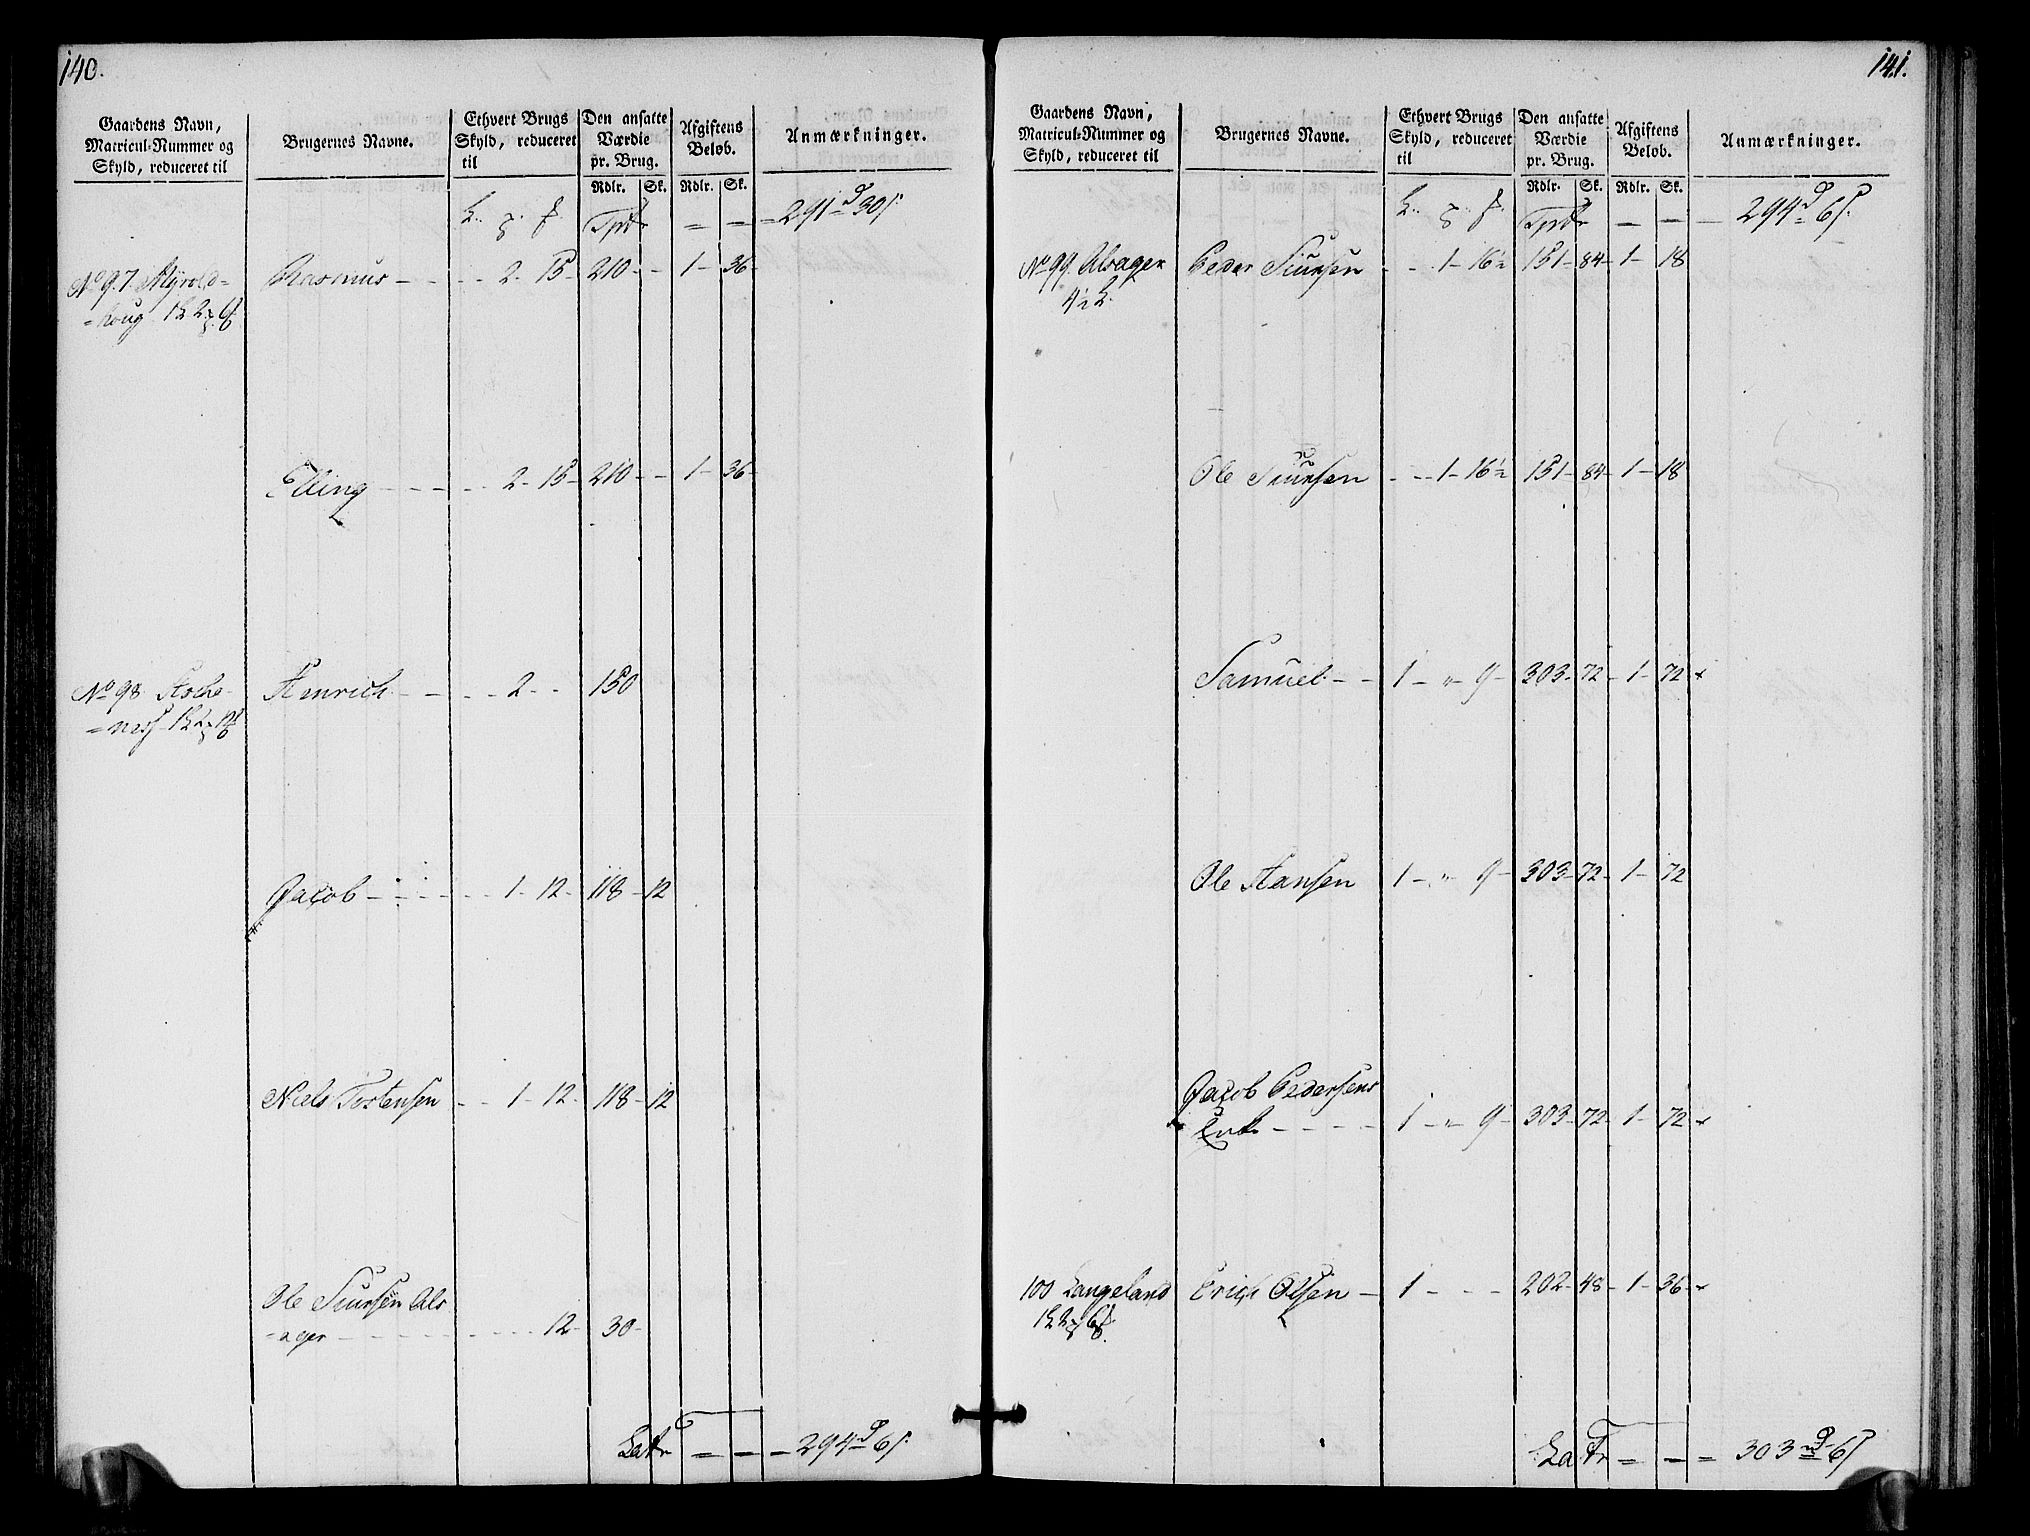 140.
Gaardens Navn,
Matricul-Nummer og
Skyld, reduceret til
Brugernes Navne.
Ethvert Brugs
Skyld, reduceret
til
Den ansatte
Værdie
pr. Brug.
Rdlr. Sk.
Afgiftens
Beløb.
Rdlr. Sk.
Anmærkninger.
Tpdr = = = 291 d 30 s.
No 97. Myrold=
=houg 1
Rasmus - - - - 2 - 15 - 210 - - 1 - 36 -
Elling - - - - - 2 - 15 - 210 - - 1 - 36 -
No 98
=ness
Henrich - - - - 2 - - 150
Jacob - - - - - - 1 - 12 - 118 - 12
Niels Tostensen - - 1 - 12 - 118 - 12
Ole Siursen Als
=ager - - - - - - - - 12 - 30 -
Latr = = = 294 d 6 s.
141.
Gaardens Navn,
Matricul-Nummer og
Skyld, reduceret til
Brugernes Navne.
Ethvert Brugs
Skyld, reduceret
til
Den ansatte
Værdie
pr. Brug.
Rdlr. Sk.
Afgiftens
Beløb.
Rdlr. Sk.
Anmærkninger.
Tpdr - - - 294 d 6 s.
No 99 Alsager
4½
Peder Siursen - - 1 - 16½ 151 - 84 - 1 - 18
Ole Siursen - - - 1 - 16½ 151 - 84 - 1 - 18
Samuel - - 1 - " 9 - 303 - 72 - 1 - 72 +
Ole Hansen 1 - " 9 - 303 - 72 - 1 - 72
Jacob Pedersens
Enke - - - - 1 - " 9 - 303 - 72 - 1 - 72 +
100 Langeland
Erich Olsen - 1 - - - 202 - 48 - 1 - 36 +
Latr = = = 303 d 6 s